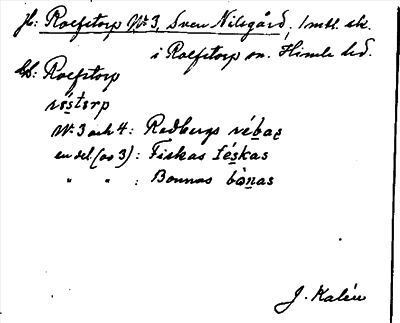 jb: Rolfstorp Nr. 3, Sven Nilsgård, 1 mtl. sk.
i Rolfstorp sn. Himle hd.
bb: Rolfstorp
röstorp
Nr. 3 och 4: Redbergs
en del (av 3): Fiskas féskas
" " : Bonnas bònas
J. Kalén